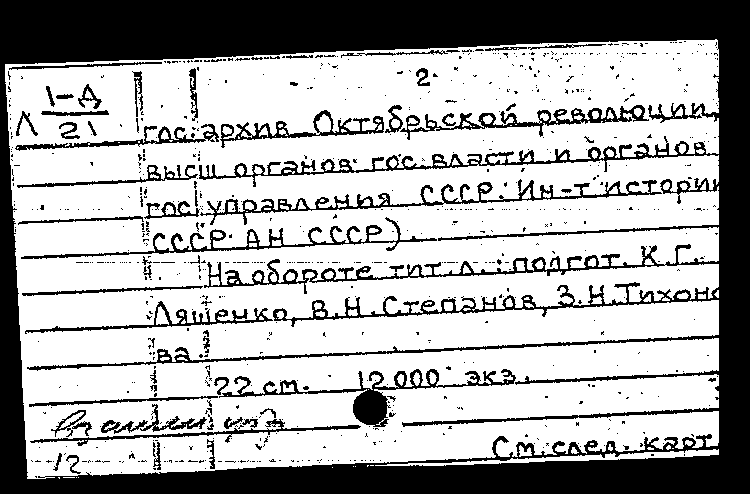 2.
Л 1-Д
21
гос. архив Октябрьской революции,
высш органов гос. власти и органов
гос управления СССР. Ин-т истории
СССР АН СССР).
На обороте тит. л.: подгот. К.Г.
Ляшенко, В.Н. Степанов, З.Н. Тихоно
ва.
22 см. 12 000 экз.
12
См. след. карт